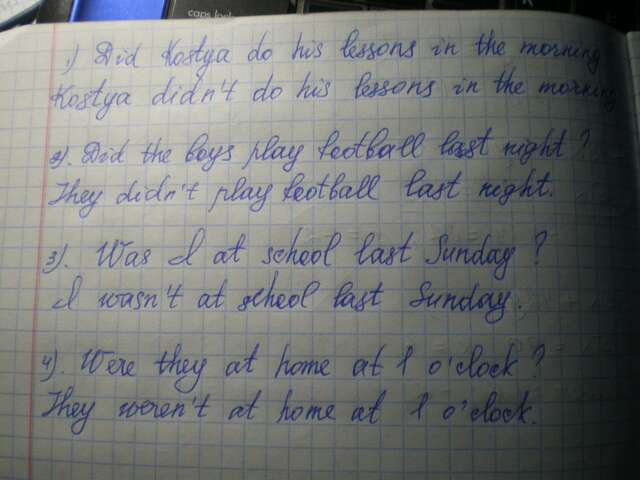 caps lock
1) Did Kostya do his lessons in the morning
Kostya didn't do his lessons in the morning
2). Did the boys play football last night?
They didn't play football last night.
3). Was I at school last Sunday?
I wasn't at school last Sunday.
4). Were they at home at 1 o'clock?
They weren't at home at 1 o'clock.